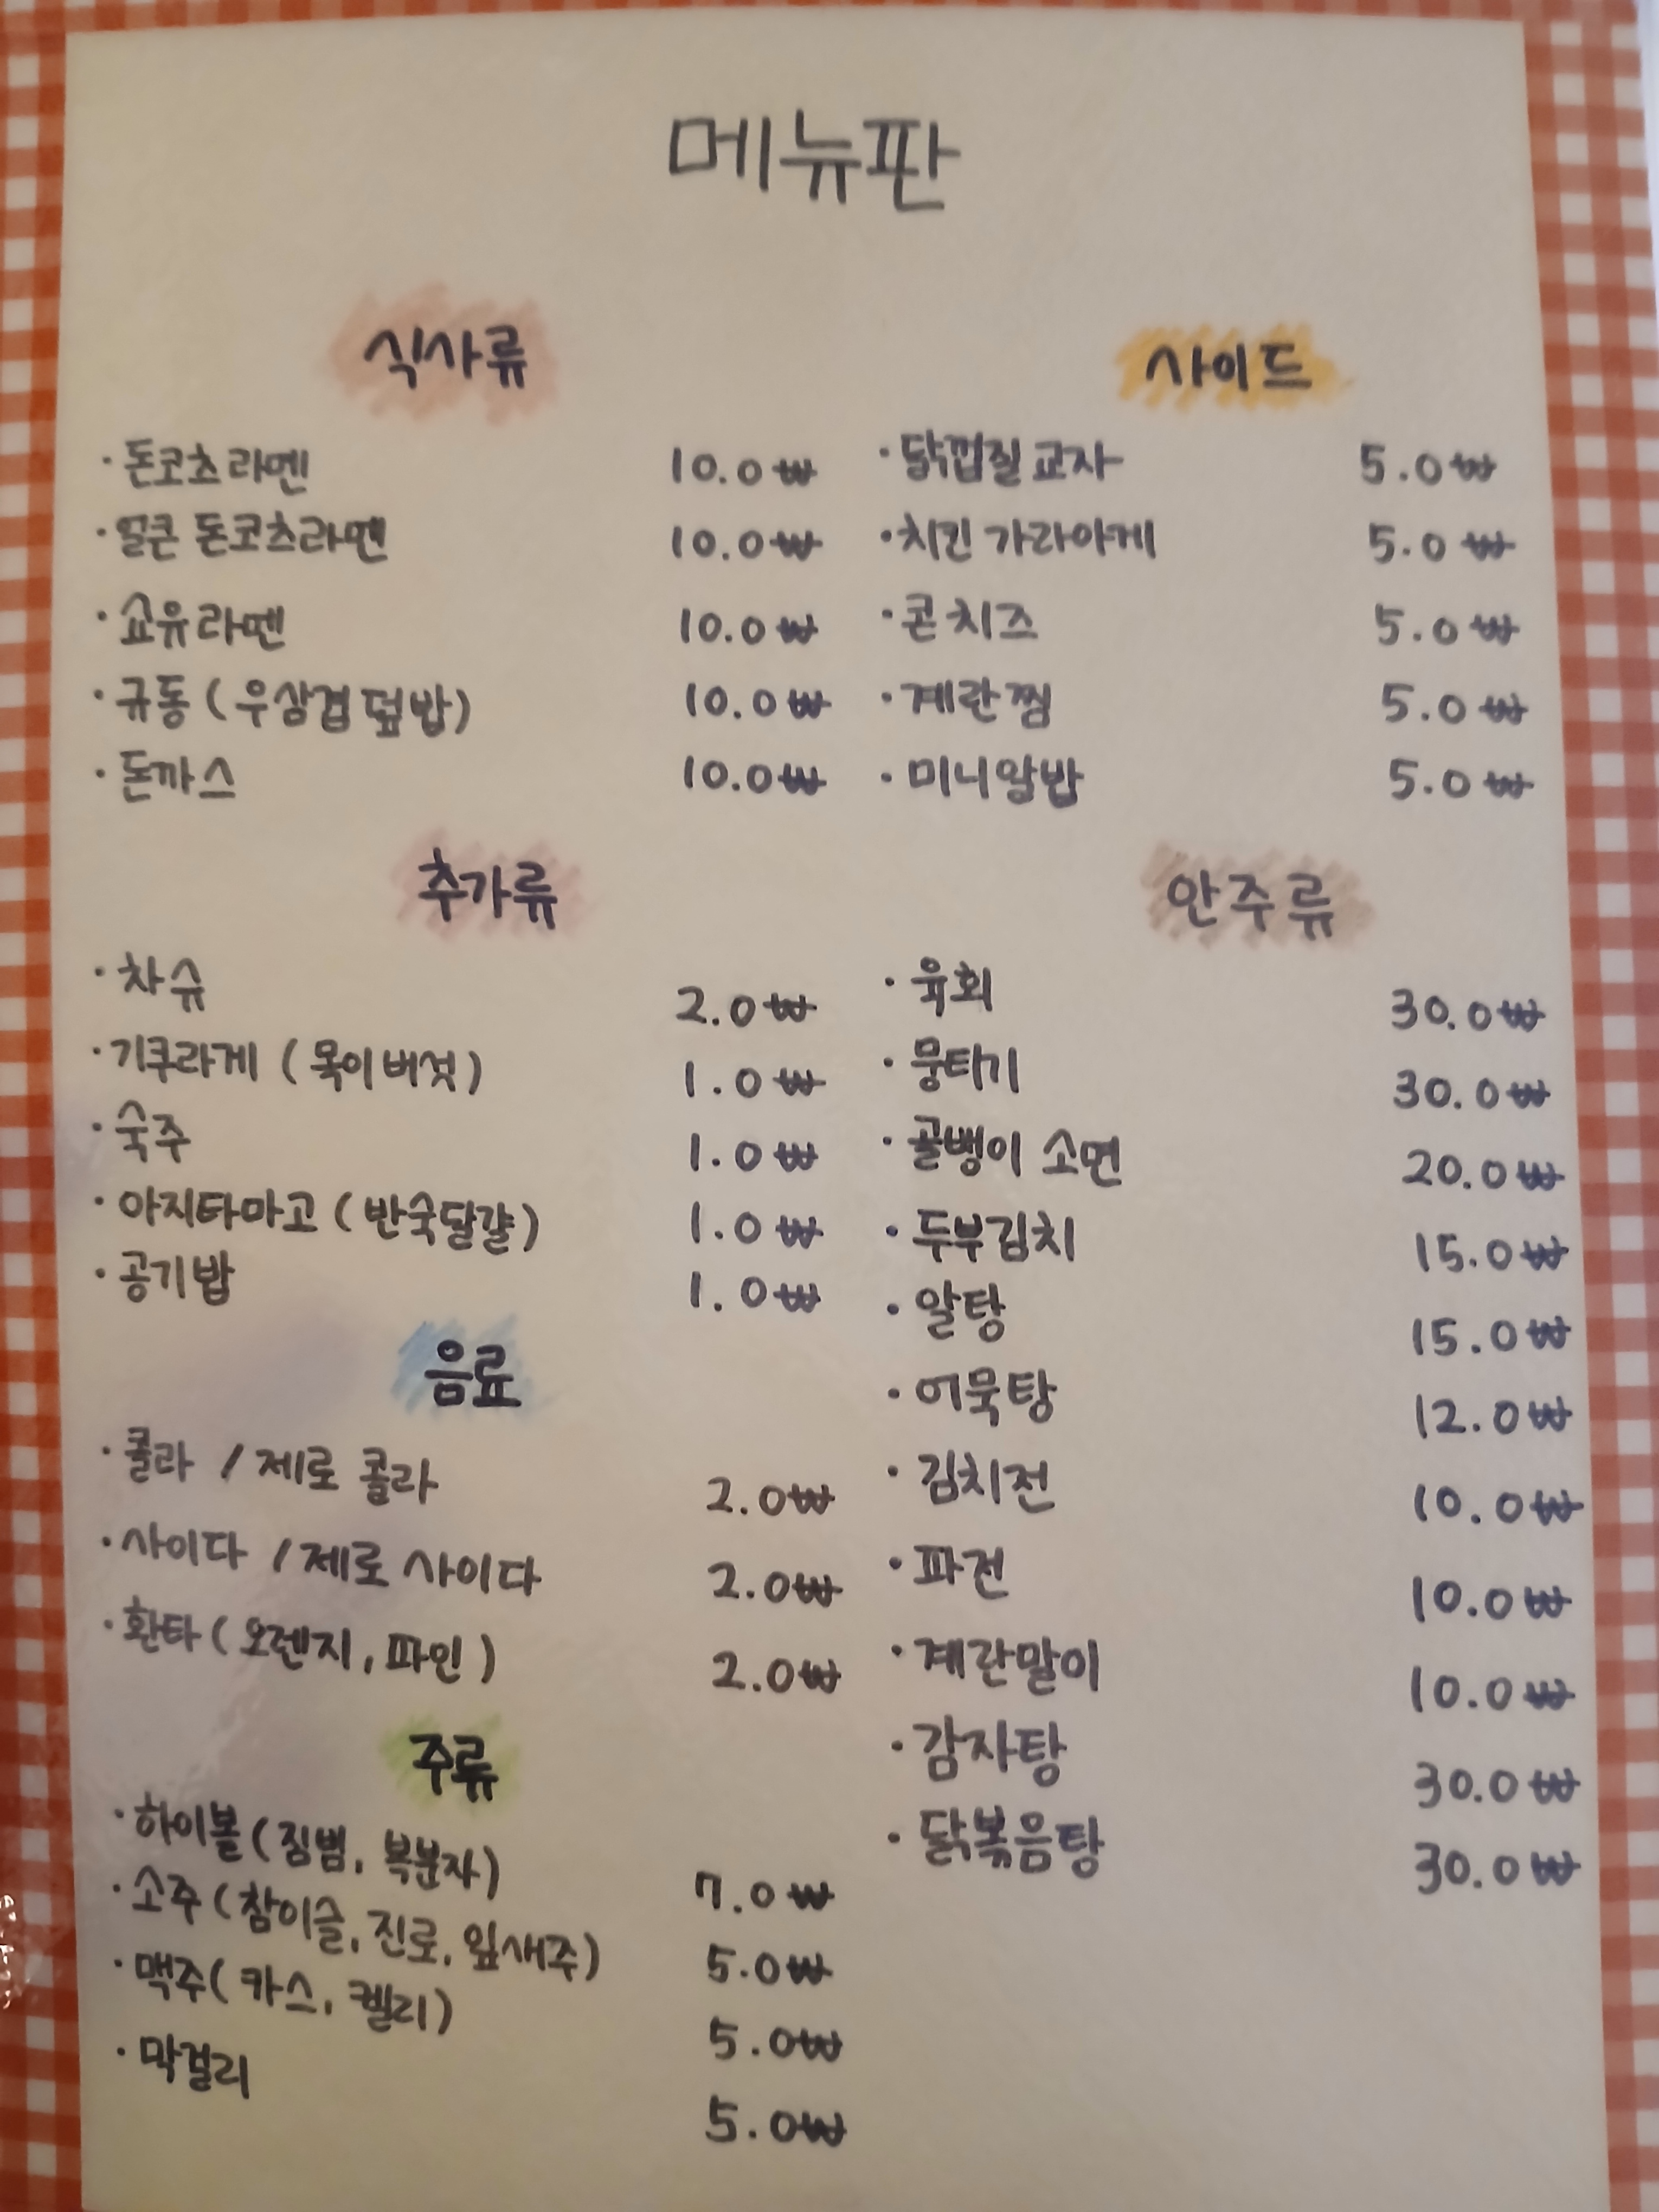 메뉴판
식사류
·돈코츠라멘 10.0₩
·얼큰 돈코츠라멘 10.0₩
·쇼유라멘 10.0₩
·규동(우삼겹덮밥) 10.0₩
·돈까스 10.0₩
추가류
·차슈 2.0₩
·기쿠라게(목이버섯) 1.0₩
·숙주 1.0₩
·아지타마고(반숙달걀) 1.0₩
·공기밥 1.0₩
음료
·콜라 / 제로 콜라 2.0₩
·사이다 / 제로 사이다 2.0₩
·환타(오렌지, 파인) 2.0₩
주류
·하이볼(짐빔, 복분자) 7.0₩
·소주(참이슬, 진로, 잎새주) 5.0₩
·맥주(카스, 켈리) 5.0₩
·막걸리 5.0₩
사이드
·닭껍질교자 5.0₩
·치킨 가라아게 5.0₩
·콘치즈 5.0₩
·계란찜 5.0₩
·미니알밥 5.0₩
안주류
·육회 30.0₩
·뭉티기 30.0₩
·골뱅이 소면 20.0₩
·두부김치 15.0₩
·알탕 15.0₩
·어묵탕 12.0₩
·김치전 10.0₩
·파전 10.0₩
·계란말이 10.0₩
·감자탕 30.0₩
·닭볶음탕 30.0₩